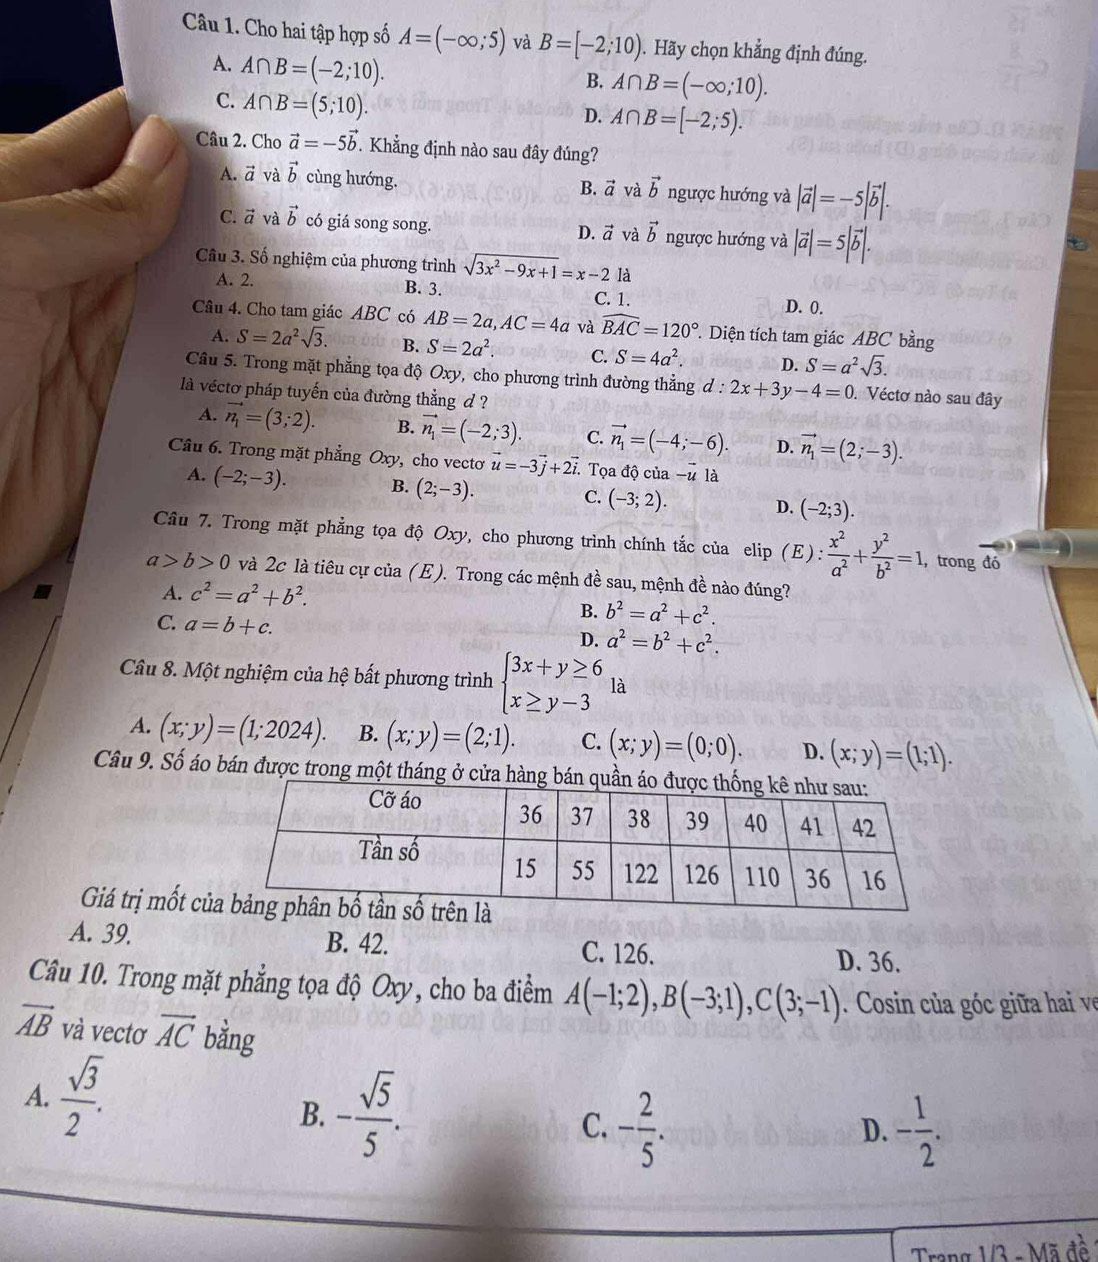 Câu 1. Cho hai tập hợp số A=(−∞;5) và B=[−2;10). Hãy chọn khẳng định đúng.
A. A∩B=(−2;10). B. A∩B=(−∞;10).
C. A∩B=(5;10). D. A∩B=[−2;5).
Câu 2. Cho a⃗ = −5b⃗. Khẳng định nào sau đây đúng?
A. a⃗ và b⃗ cùng hướng. B. a⃗ và b⃗ ngược hướng và |a⃗|=−5|b⃗|.
C. a⃗ và b⃗ có giá song song. D. a⃗ và b⃗ ngược hướng và |a⃗|=5|b⃗|.
Câu 3. Số nghiệm của phương trình √(3x²−9x+1) = x−2 là
A. 2. B. 3. C. 1. D. 0.
Câu 4. Cho tam giác ABC có AB=2a, AC=4a và BAC=120°. Diện tích tam giác ABC bằng
A. S=2a²√3. B. S=2a². C. S=4a². D. S=a²√3.
Câu 5. Trong mặt phẳng tọa độ Oxy, cho phương trình đường thẳng d : 2x+3y−4=0. Véctơ nào sau đây
là véctơ pháp tuyến của đường thẳng d ?
A. n₁⃗=(3;2). B. n₁⃗=(−2;3). C. n₁⃗=(−4;−6). D. n₁⃗=(2;−3).
Câu 6. Trong mặt phẳng Oxy, cho vectơ u⃗=−3j⃗+2i⃗. Tọa độ của −u⃗ là
A. (−2;−3). B. (2;−3). C. (−3; 2). D. (−2;3).
Câu 7. Trong mặt phẳng tọa độ Oxy, cho phương trình chính tắc của elip (E): x²/a² + y²/b² = 1, trong đó
a>b>0 và 2c là tiêu cự của (E). Trong các mệnh đề sau, mệnh đề nào đúng?
A. c²=a²+b². B. b²=a²+c².
C. a=b+c. D. a²=b²+c².
Câu 8. Một nghiệm của hệ bất phương trình {3x+y≥6
x≥y−3 là
A. (x;y)=(1;2024). B. (x;y)=(2;1). C. (x;y)=(0;0). D. (x;y)=(1;1).
Câu 9. Số áo bán được trong một tháng ở cửa hàng bán quần áo được thống kê như sau:
Cỡ áo 36 37 38 39 40 41 42
Tần số 15 55 122 126 110 36 16
Giá trị mốt của bảng phân bố tần số trên là
A. 39. B. 42. C. 126. D. 36.
Câu 10. Trong mặt phẳng tọa độ Oxy, cho ba điểm A(−1;2), B(−3;1), C(3;−1). Cosin của góc giữa hai
AB⃗ và vectơ AC⃗ bằng
A. √3/2. B. −√5/5. C. −2/5. D. −1/2.
Trang 1/3 - Mã đề